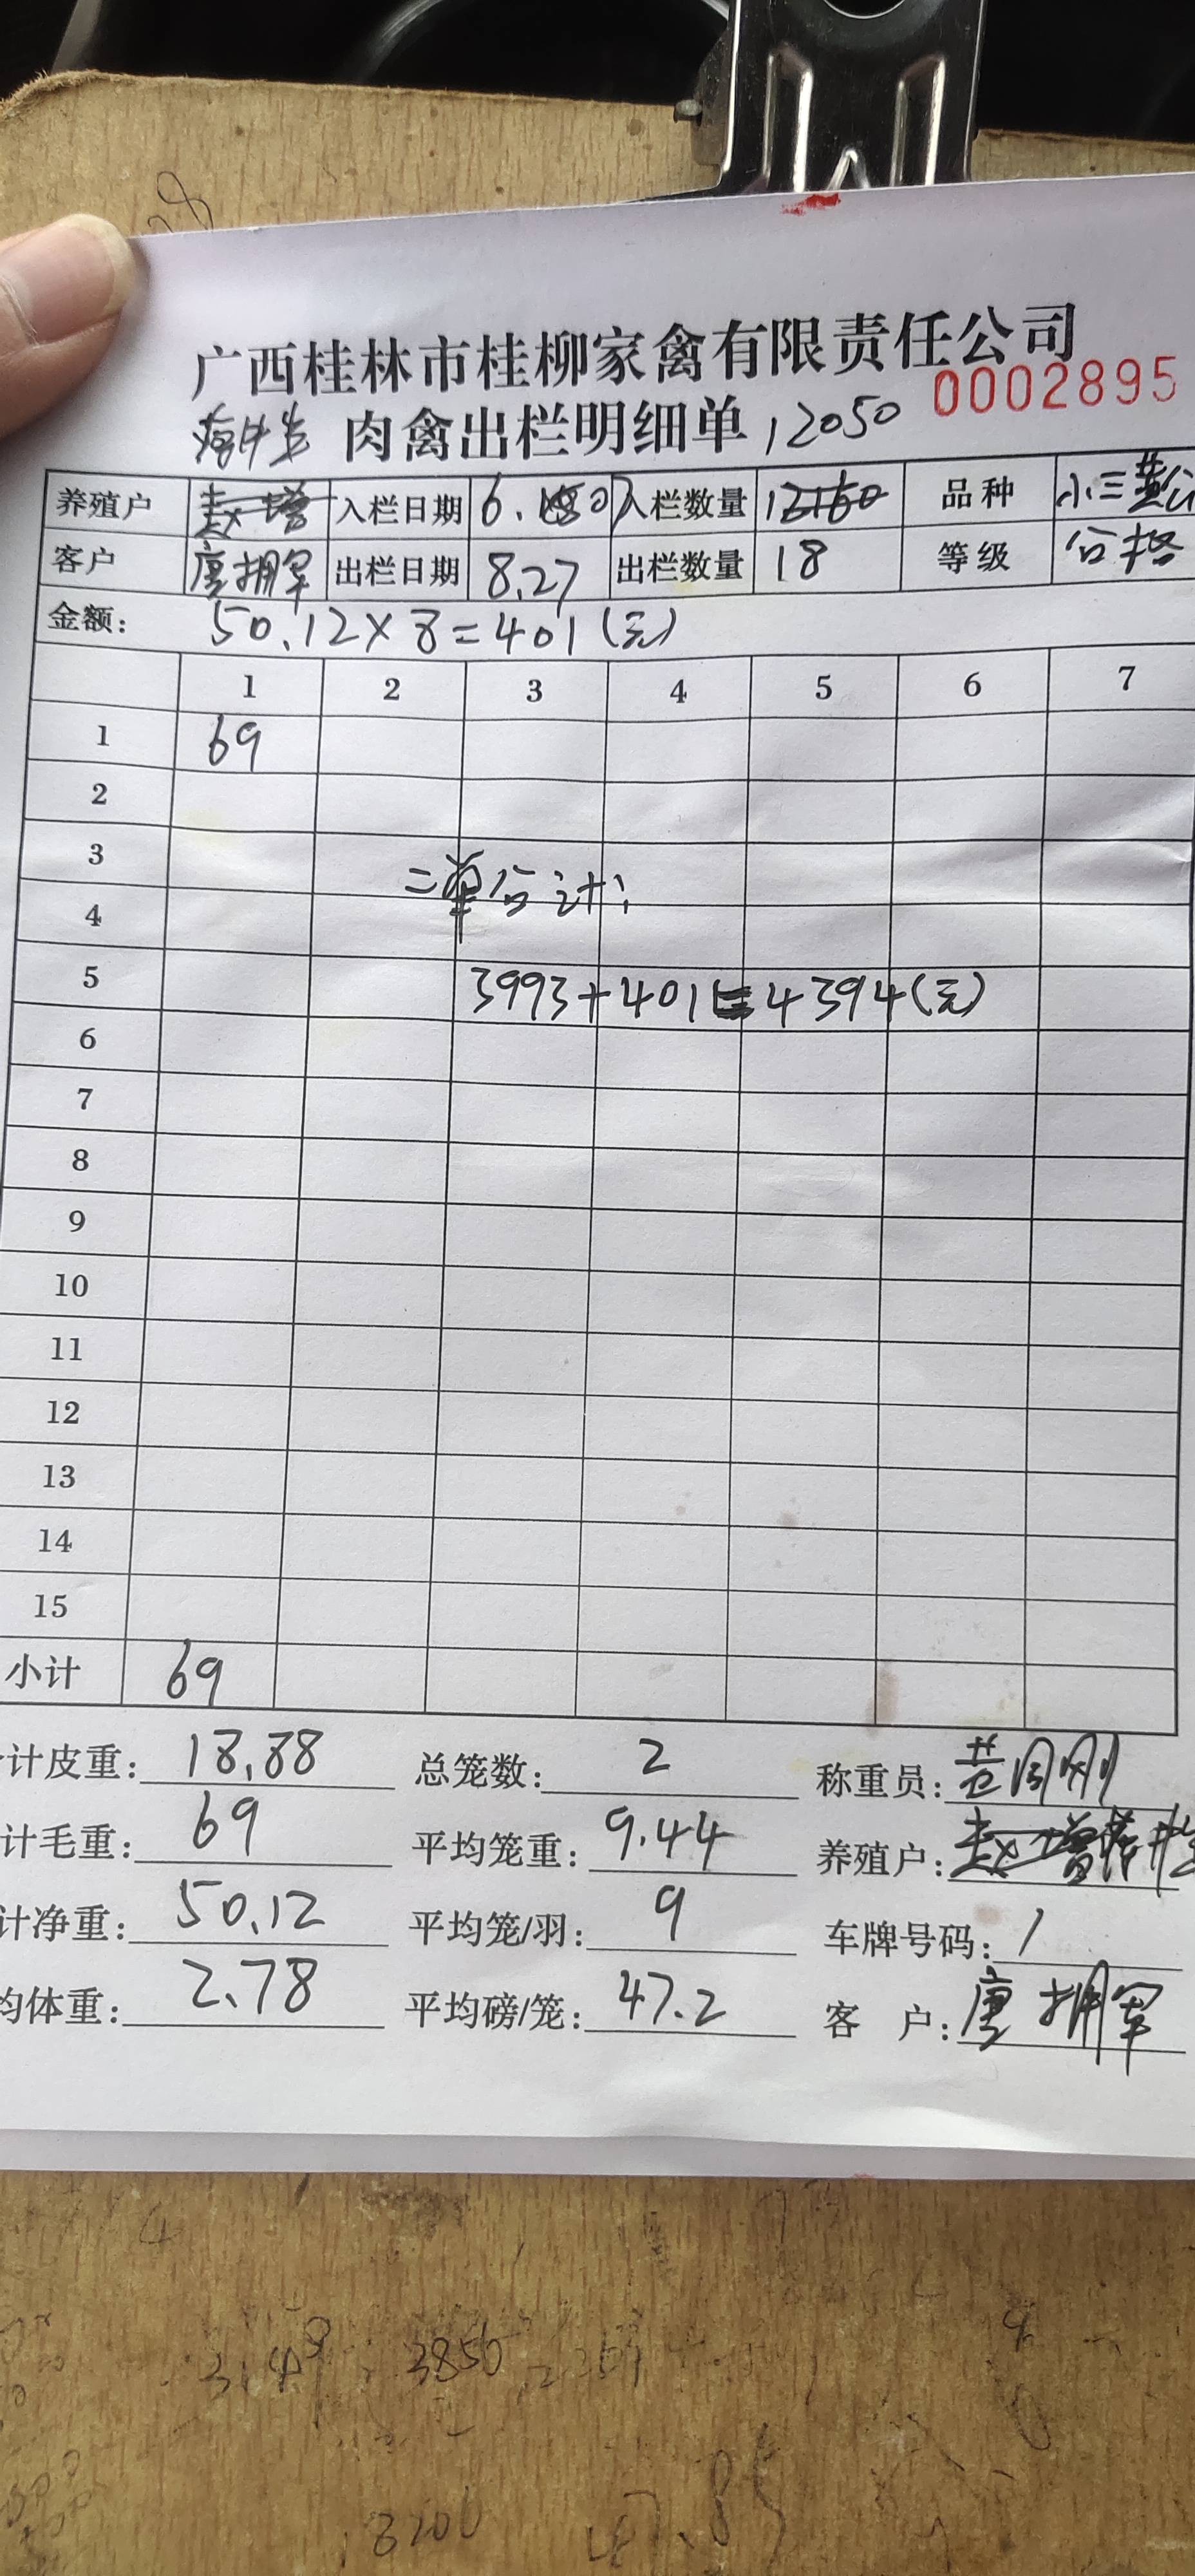 广西桂林市桂柳家禽有限责任公司
0002895
肉禽出栏明细单 12050
养殖户 赵增 入栏日期 6. 入栏数量 12160 品种 小三黄公
客户 唐拥军 出栏日期 8.27 出栏数量 18 等级 合格
金额: 50.12×8=401(元)
1 2 3 4 5 6 7
1 69
2
3
二单合计:
4
5 3993+401=4394(元)
6
7
8
9
10
11
12
13
14
15
小计 69
计皮重: 18.88 总笼数: 2 称重员: 黄闯刚
计毛重: 69 平均笼重: 9.44 养殖户: 赵增
计净重: 50.12 平均笼/羽: 9 车牌号码: /
均体重: 2.78 平均磅/笼: 47.2 客 户: 唐拥军
3850